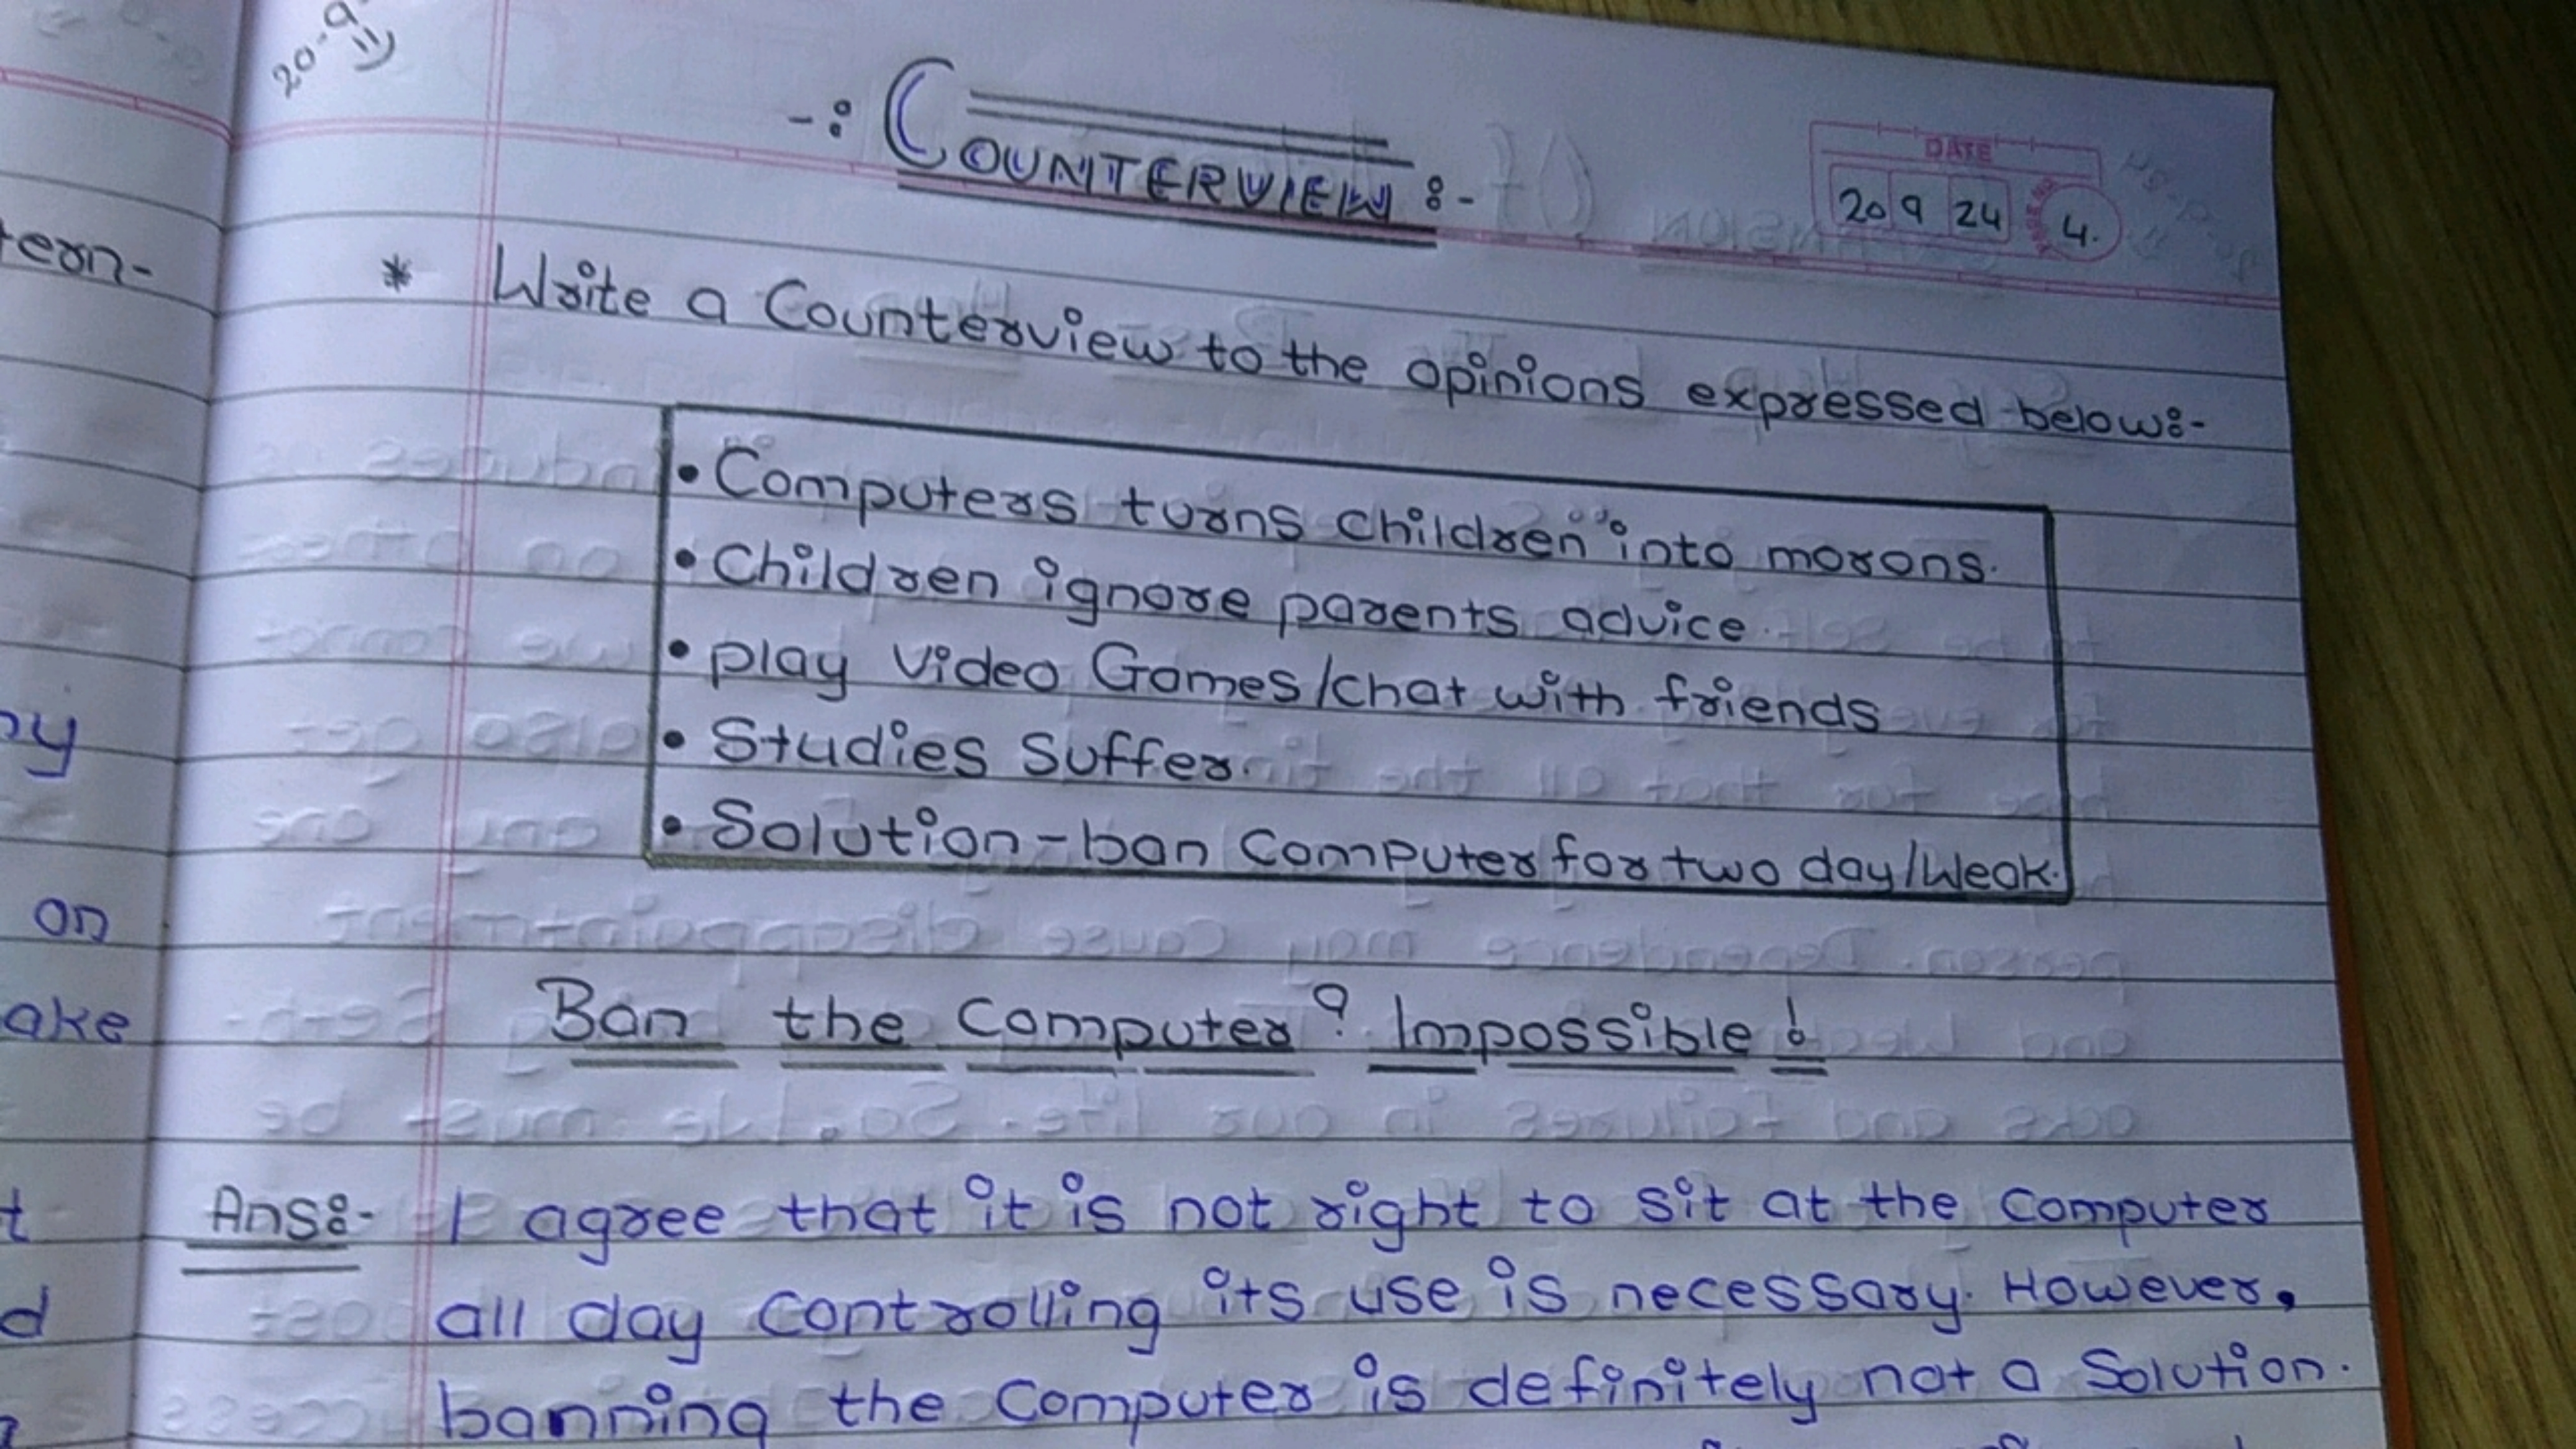 20-9
-: COUNTERVIEW :-
DATE
20 9 24 4.
* Write a Counterview to the opinions expressed below:-
• Computers turns children into morons.
• Children ignore parents advice.
• play video Games/chat with friends
• Studies Suffer.
• Solution-ban Computer for two day/Weak.
Ban the Computer? Impossible!
Ans:- I agree that it is not right to sit at the Computer
all day Controlling its use is necessary. However,
banning the Computer is definitely not a Solution.
tern-
on
ake
t
d